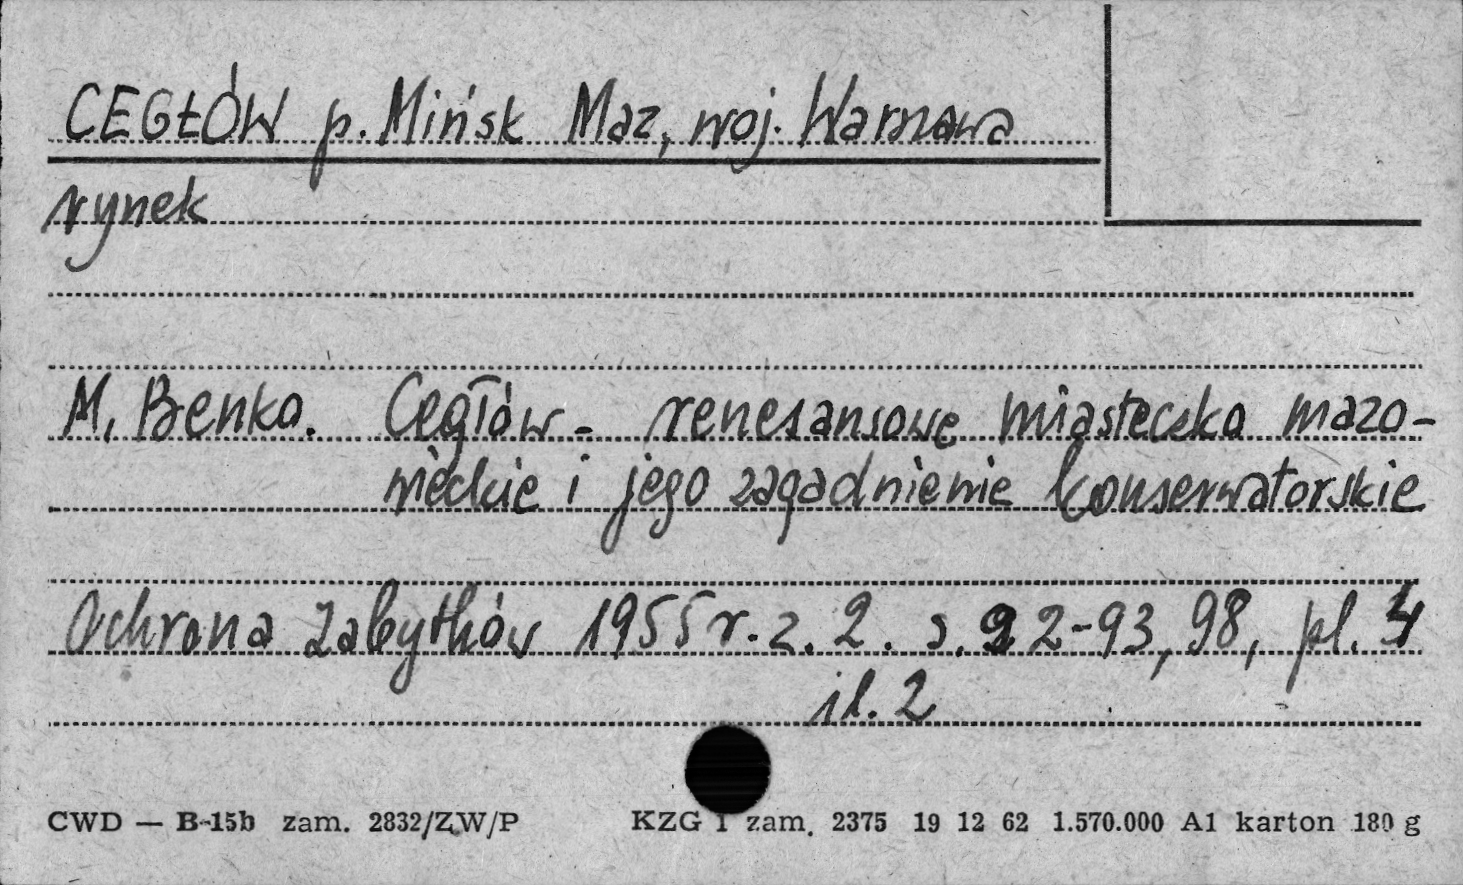 CEGŁÓW p. Mińsk Maz, woj. Warszawa
rynek
M. Benko. Cegłów - renesansowe miasteczko mazo-
wieckie i jego zagadnienie konserwatorskie
Ochrona Zabytków 1955 r. z. 2. s. 92-93, 98, pl. 4
il. 2
CWD — B-15b zam. 2832/ZW/P KZG 1 zam. 2375 19 12 62 1.570.000 A1 karton 180 g